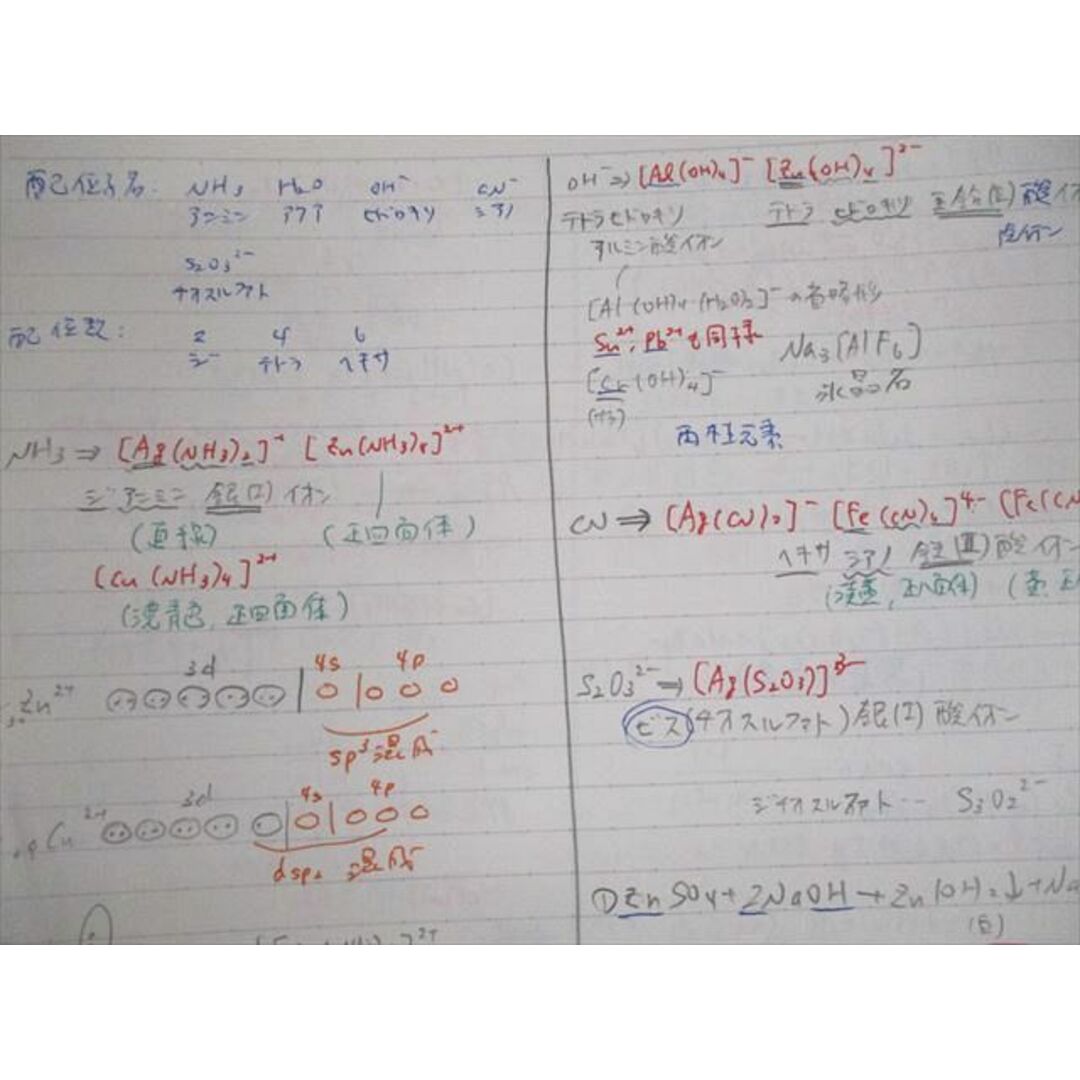 配位子名: NH3 H2O OH⁻ CN⁻
アンミン アクア ヒドロキソ シアノ
S2O3²⁻
チオスルファト
配位数: 2 4 6
ジ テトラ ヘキサ
NH3 ⇒ [Ag(NH3)2]⁺ [Zn(NH3)4]²⁺
ジアンミン 銀(I) イオン
(直線) (正四面体)
[Cu(NH3)4]²⁺
(濃青色, 正四面体)
3d 4s 4p
Zn²⁺
sp³混成
3d 4s 4p
Cu²⁺
dsp2 混成
]²⁺
OH⁻ ⇒ [Al(OH)4]⁻ [Zn(OH)4]²⁻
テトラヒドロキソ テトラ ヒドロキソ 亜鉛(II) 酸イ
アルミン酸イオン
[Al(OH)4(H2O)2]⁻の省略形
Sn²⁺, Pb²⁺も同様 Na3[AlF6]
[Cr(OH)4]⁻ 氷晶石
両性元素
CN ⇒ [Ag(CN)2]⁻ [Fe(CN)6]⁴⁻ [Fe(CN
ヘキサ シアノ 鉄(II)酸イオン
正八面体) (黄, 正
S2O3²⁻ → [Ag(S2O3)]³⁻
ビス(チオスルファト)銀(I)酸イオン
ジチオスルファト… S3O2²⁻
① ZnSO4 + 2NaOH → Zn(OH)2↓ + Na
(白)